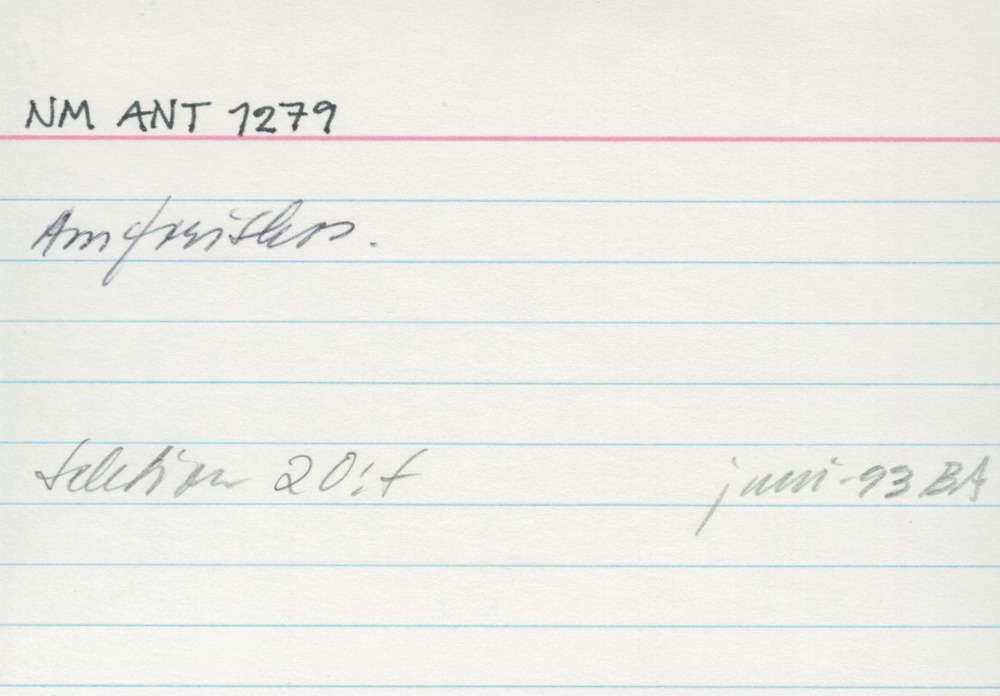 NM ANT 1279
Amforiskos.
Sektion 20:f juni-93 BA